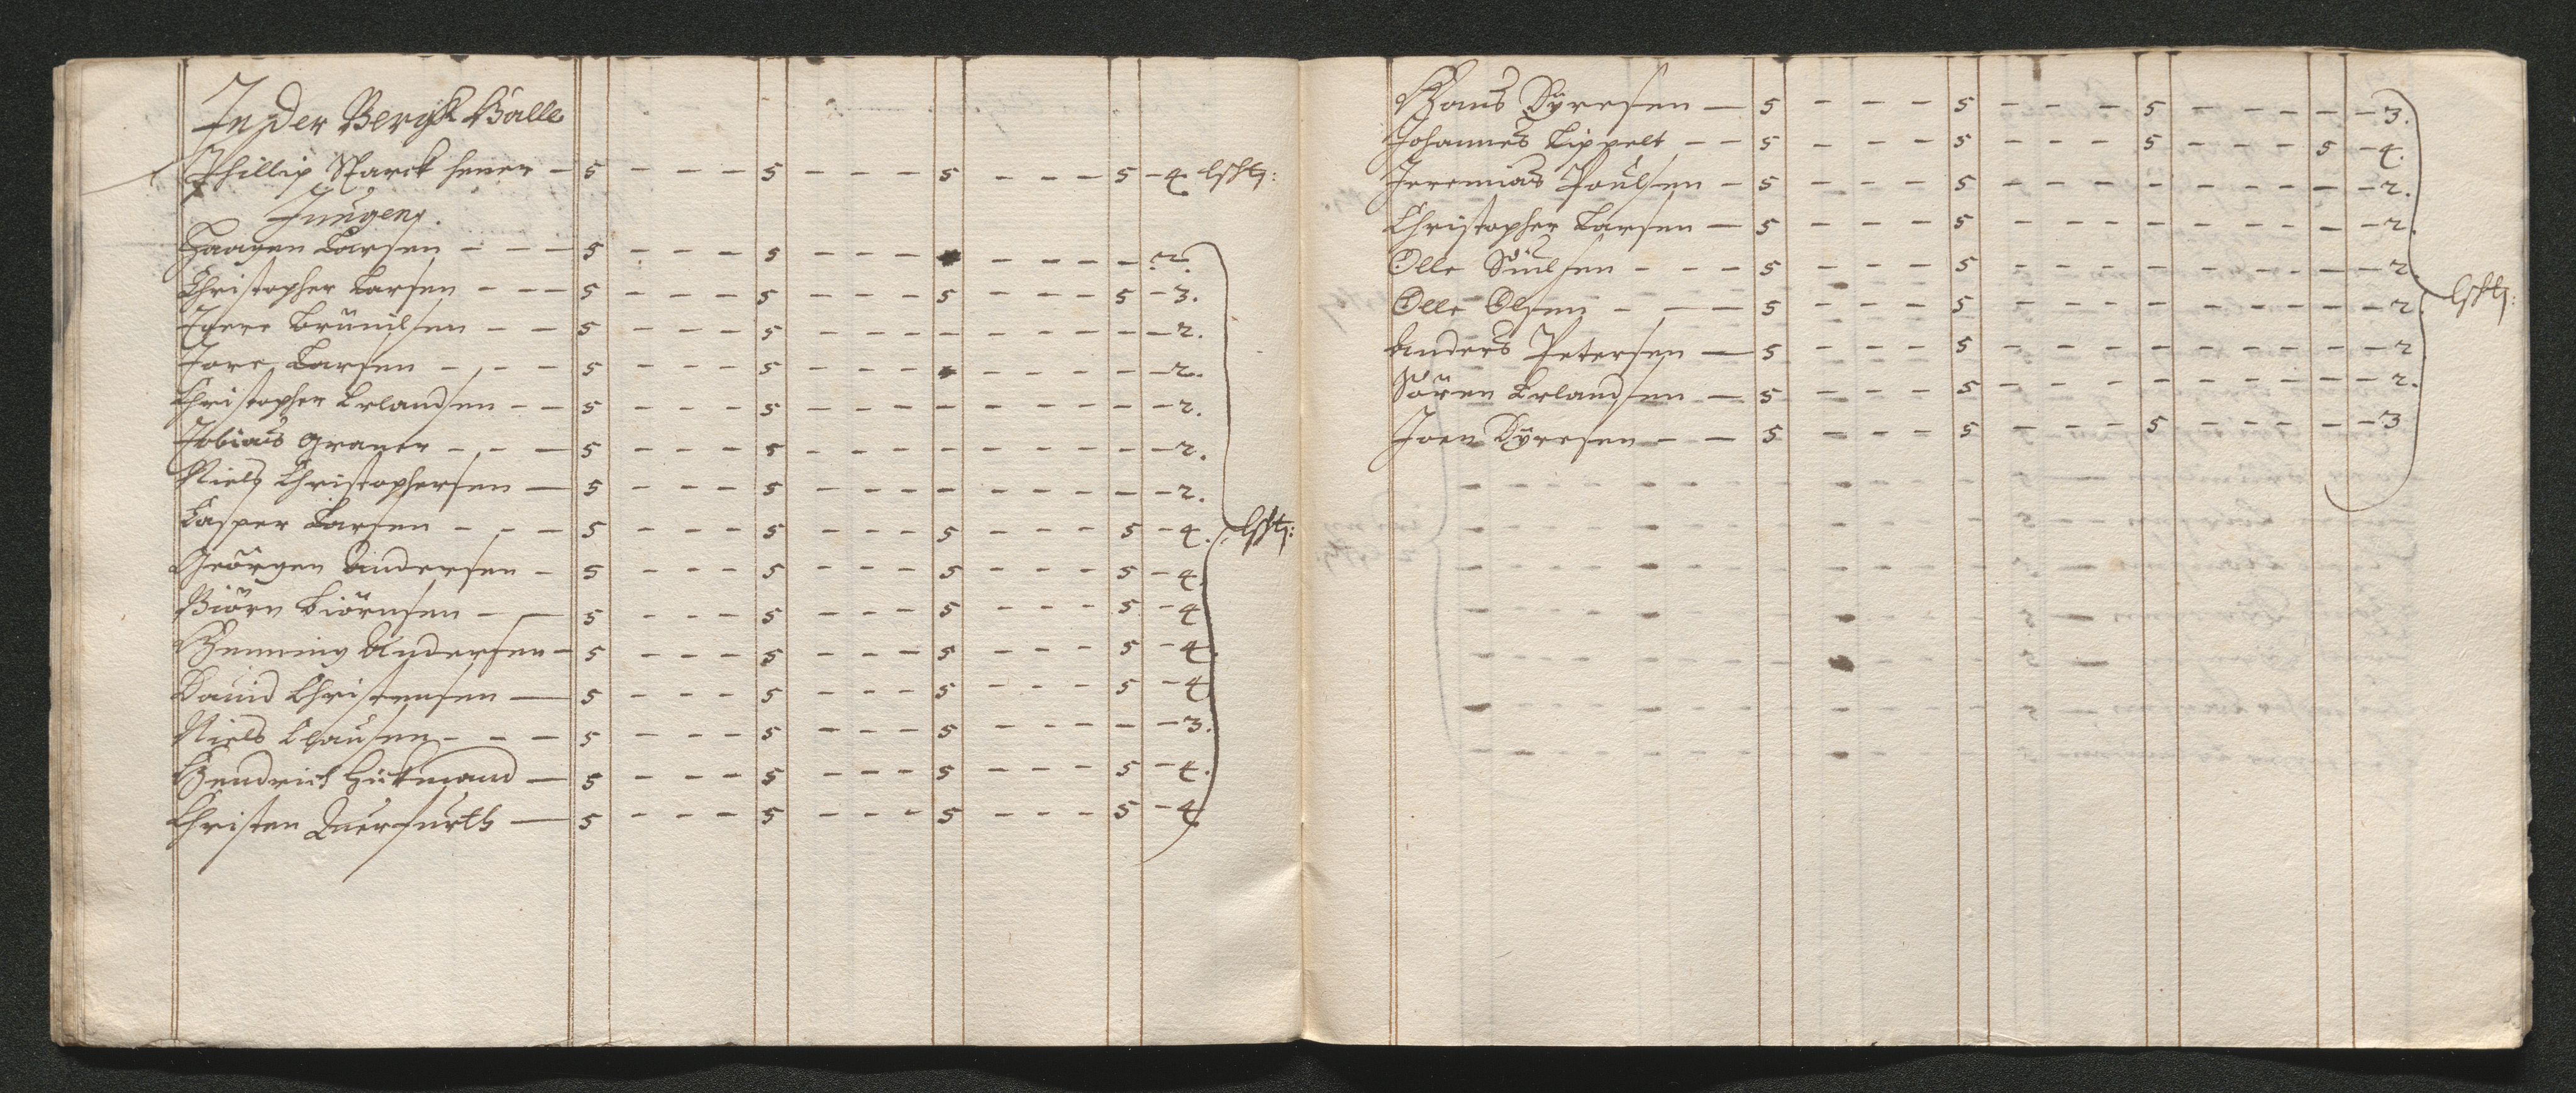 In der Beryk Halle
Phillip Starck hener — 5 - - - - 5 - - - - 5 - - - - 5 - 4 lsht:
Jungens.
Haagen Larsen - - - 5 - - - - 5 - - - - - - - - - 2.
Christopher Larsen - - - 5 - - - - 5 - - - - 5 - - - - 5 - 3.
- - 5 - - - - 5 - - - - - - - - - 2.
Tore Larsen - - - 5 - - - - 5 - - - - - - - - - 2.
Christopher Erlandsen - - 5 - - - - 5 - - - - - - - - - 2.
Tobias Graner - - - 5 - - - - 5 - - - - - - - - - 2.
Niels Christophersen — 5 - - - - 5 - - - - - - - - - 2.
Casper Larsen - - - 5 - - - - 5 - - - - 5 - - - - 5 - 4. lsht:
Geörgen Andersen - 5 - - - - 5 - - - 5 - - - 5 - 4.
Biörn Biörnsen - — 5 - - - 5 - - - 5 - - - 5 - 4
Henning Andersen - 5 - - - - 5 - - - 5 - - - 5 - 4
David Christensen — 5 - - - - 5 - - - 5 - - - 5 - 4
Niels Clausen - - - 5 - - - - 5 - - - 5 - - - - - 3.
Hendrich Hütmand — 5 - - - - 5 - - - 5 - - - 5 - 4.
Christen Querfurth — 5 - - - - 5 - - - 5 - - - 5 - 4
Hans Dÿresen — 5 - - - 5 - - - 5 - - - - - 3.
Johannes Lippelt - - 5 - - - 5 - - - 5 - - - 5 - 4.
Jeremias Poulsen - 5 - - - 5 - - - - - - - - - 2.
Christopher Larsen — 5 - - - 5 - - - - - - - - - 2.
Olle - - - 5 - - - 5 - - - - - - - - - 2.
lsht:
Olle Olsen - - — 5 - - - 5 - - - - - - - - - 2.
Anders Petersen — 5 - - - 5 - - - - - - - - - 2
Sören Erlandsen — 5 - - - 5 - - - - - - - - - 2.
Joen Dÿresen - - 5 - - - 5 - - - 5 - - - - - 3